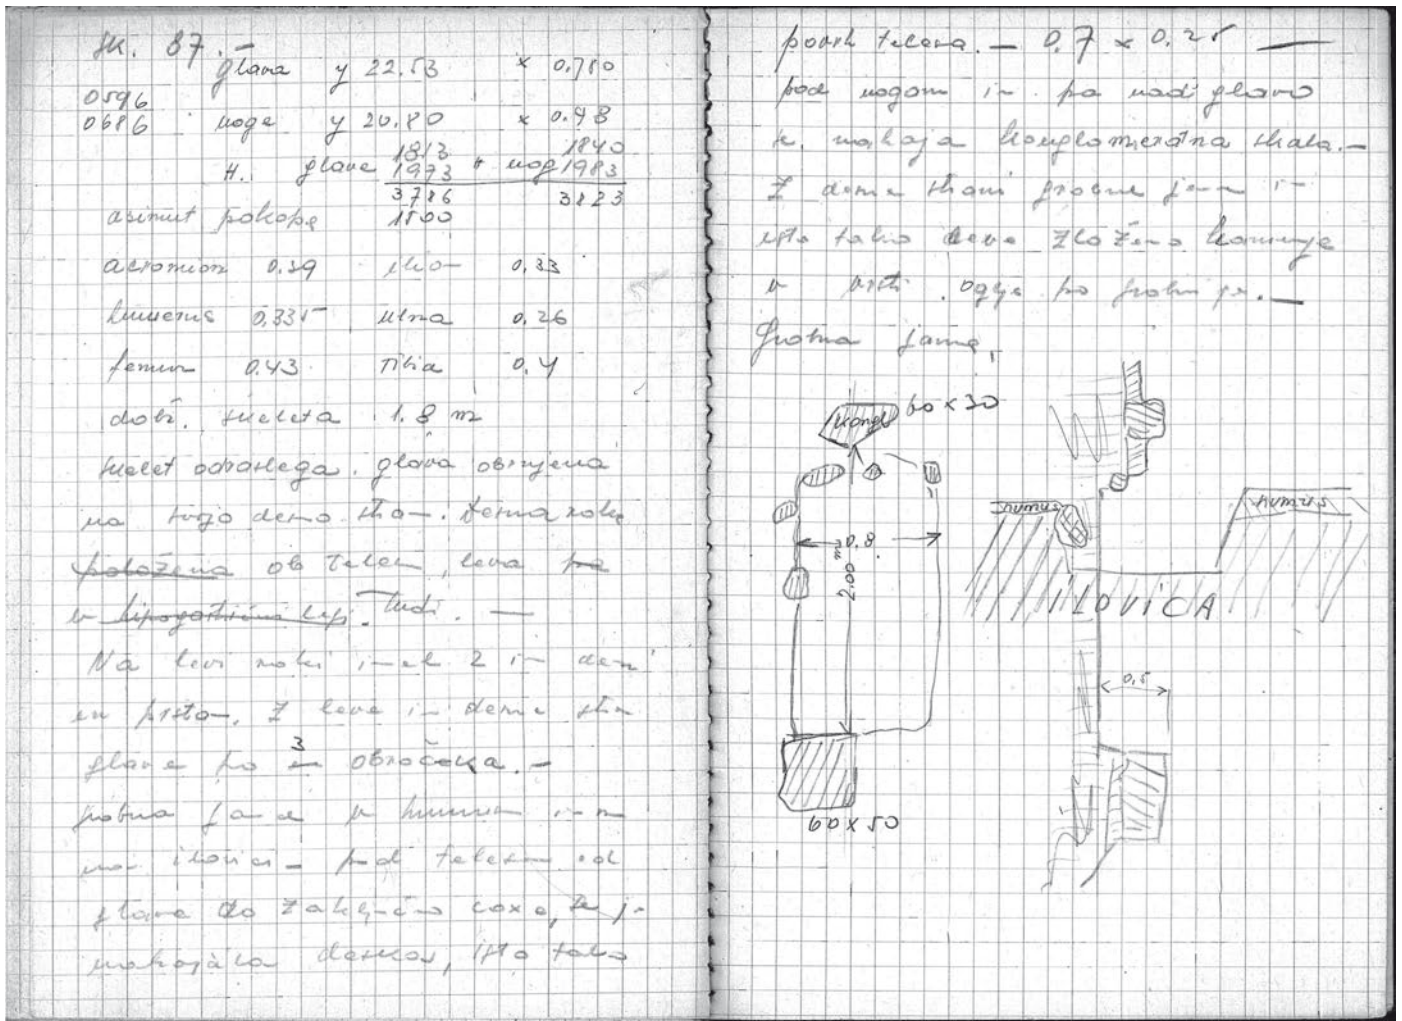 sk. 87. —
glava y 22.53 x 0.780
0596
0686 noge y 20.80 x 0.98
1813 1840
H. glave 1973 + nog 1983
3786 3823
asimut pokopa 1500
acromion 0.39 ilio- 0,33
humerus 0,335 ulna 0,26
femur 0.43 Tibia 0,4
dolž. skeleta 1.8 m
skelet odraslega. glava obrnjena
na svojo desno stran. Desna roka
položena ob telesu, leva pa
v tudi. —
Na levi roki in desni
prstan. Z leve in desne stra
glave po 3 obročka. —
grobna jama v humusu in
na ilovici — pod telesom od
glave do coxe, se je
nahajala deska, isto tako
povrh telesa. — 0.7 x 0.25 —
pod nogami in pa nad glavo
se nahaja konglomeratna skala. —
Z desne strani grobne jame in
isto tako leve zloženo kamenje
v vrsti. oglje po grobnici. —
Grobna jama,
kongl 60 x 30
humus
humus
0.8
2.00 m
ILOVICA
0,5
60 x 50